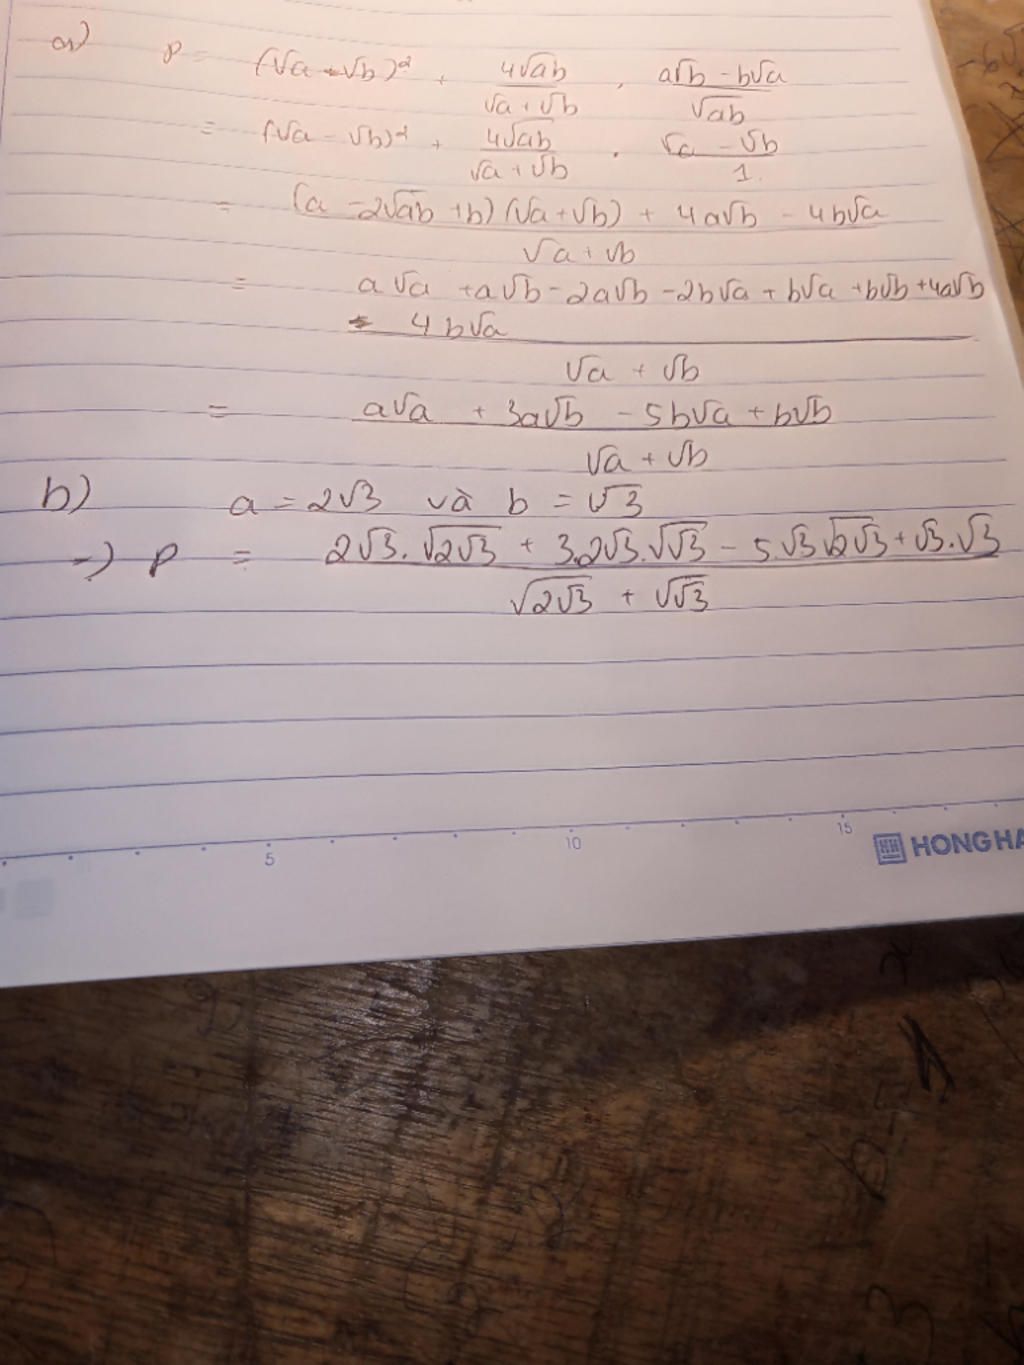 a) P = (√a - √b)² + 4√ab / √a + √b . a√b - b√a / √ab
= (√a - √b)² + 4√ab / √a + √b . √a - √b / 1.
= (a - 2√ab + b)(√a + √b) + 4a√b - 4b√a / √a + √b
= a√a + a√b - 2a√b - 2b√a + b√a + b√b + 4a√b
- 4b√a
√a + √b
= a√a + 3a√b - 5b√a + b√b / √a + √b
b) a = 2√3 và b = √3
=> P = 2√3.√2√3 + 3.2√3.√√3 - 5.√3√2√3 + √3.√3 / √2√3 + √√3
5 10 15
HONG HA